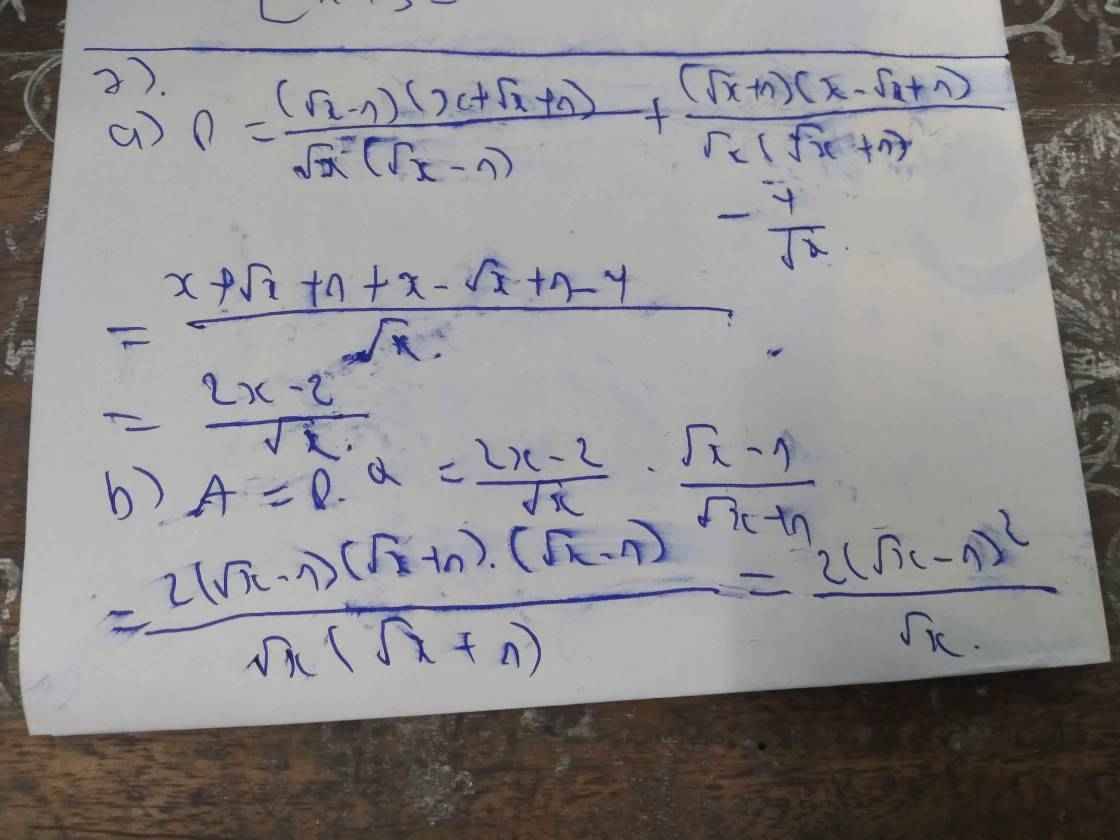 2).
a) P = ((√x-1)(x+√x+1))/(√x(√x-1)) + ((√x+1)(x-√x+1))/(√x(√x+1))
- 4/√x.
= (x+√x+1+x-√x+1-4)/√x.
= (2x-2)/√x.
b) A = P.Q = (2x-2)/√x . (√x-1)/(√x+1)
= (2(√x-1)(√x+1).(√x-1))/(√x(√x+1)) = 2(√x-1)²/√x.